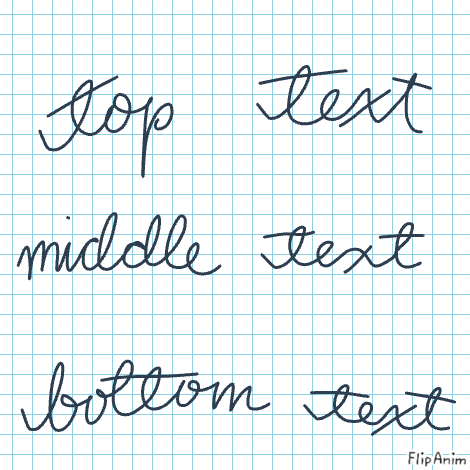 top text
middle text
bottom text
FlipAnim